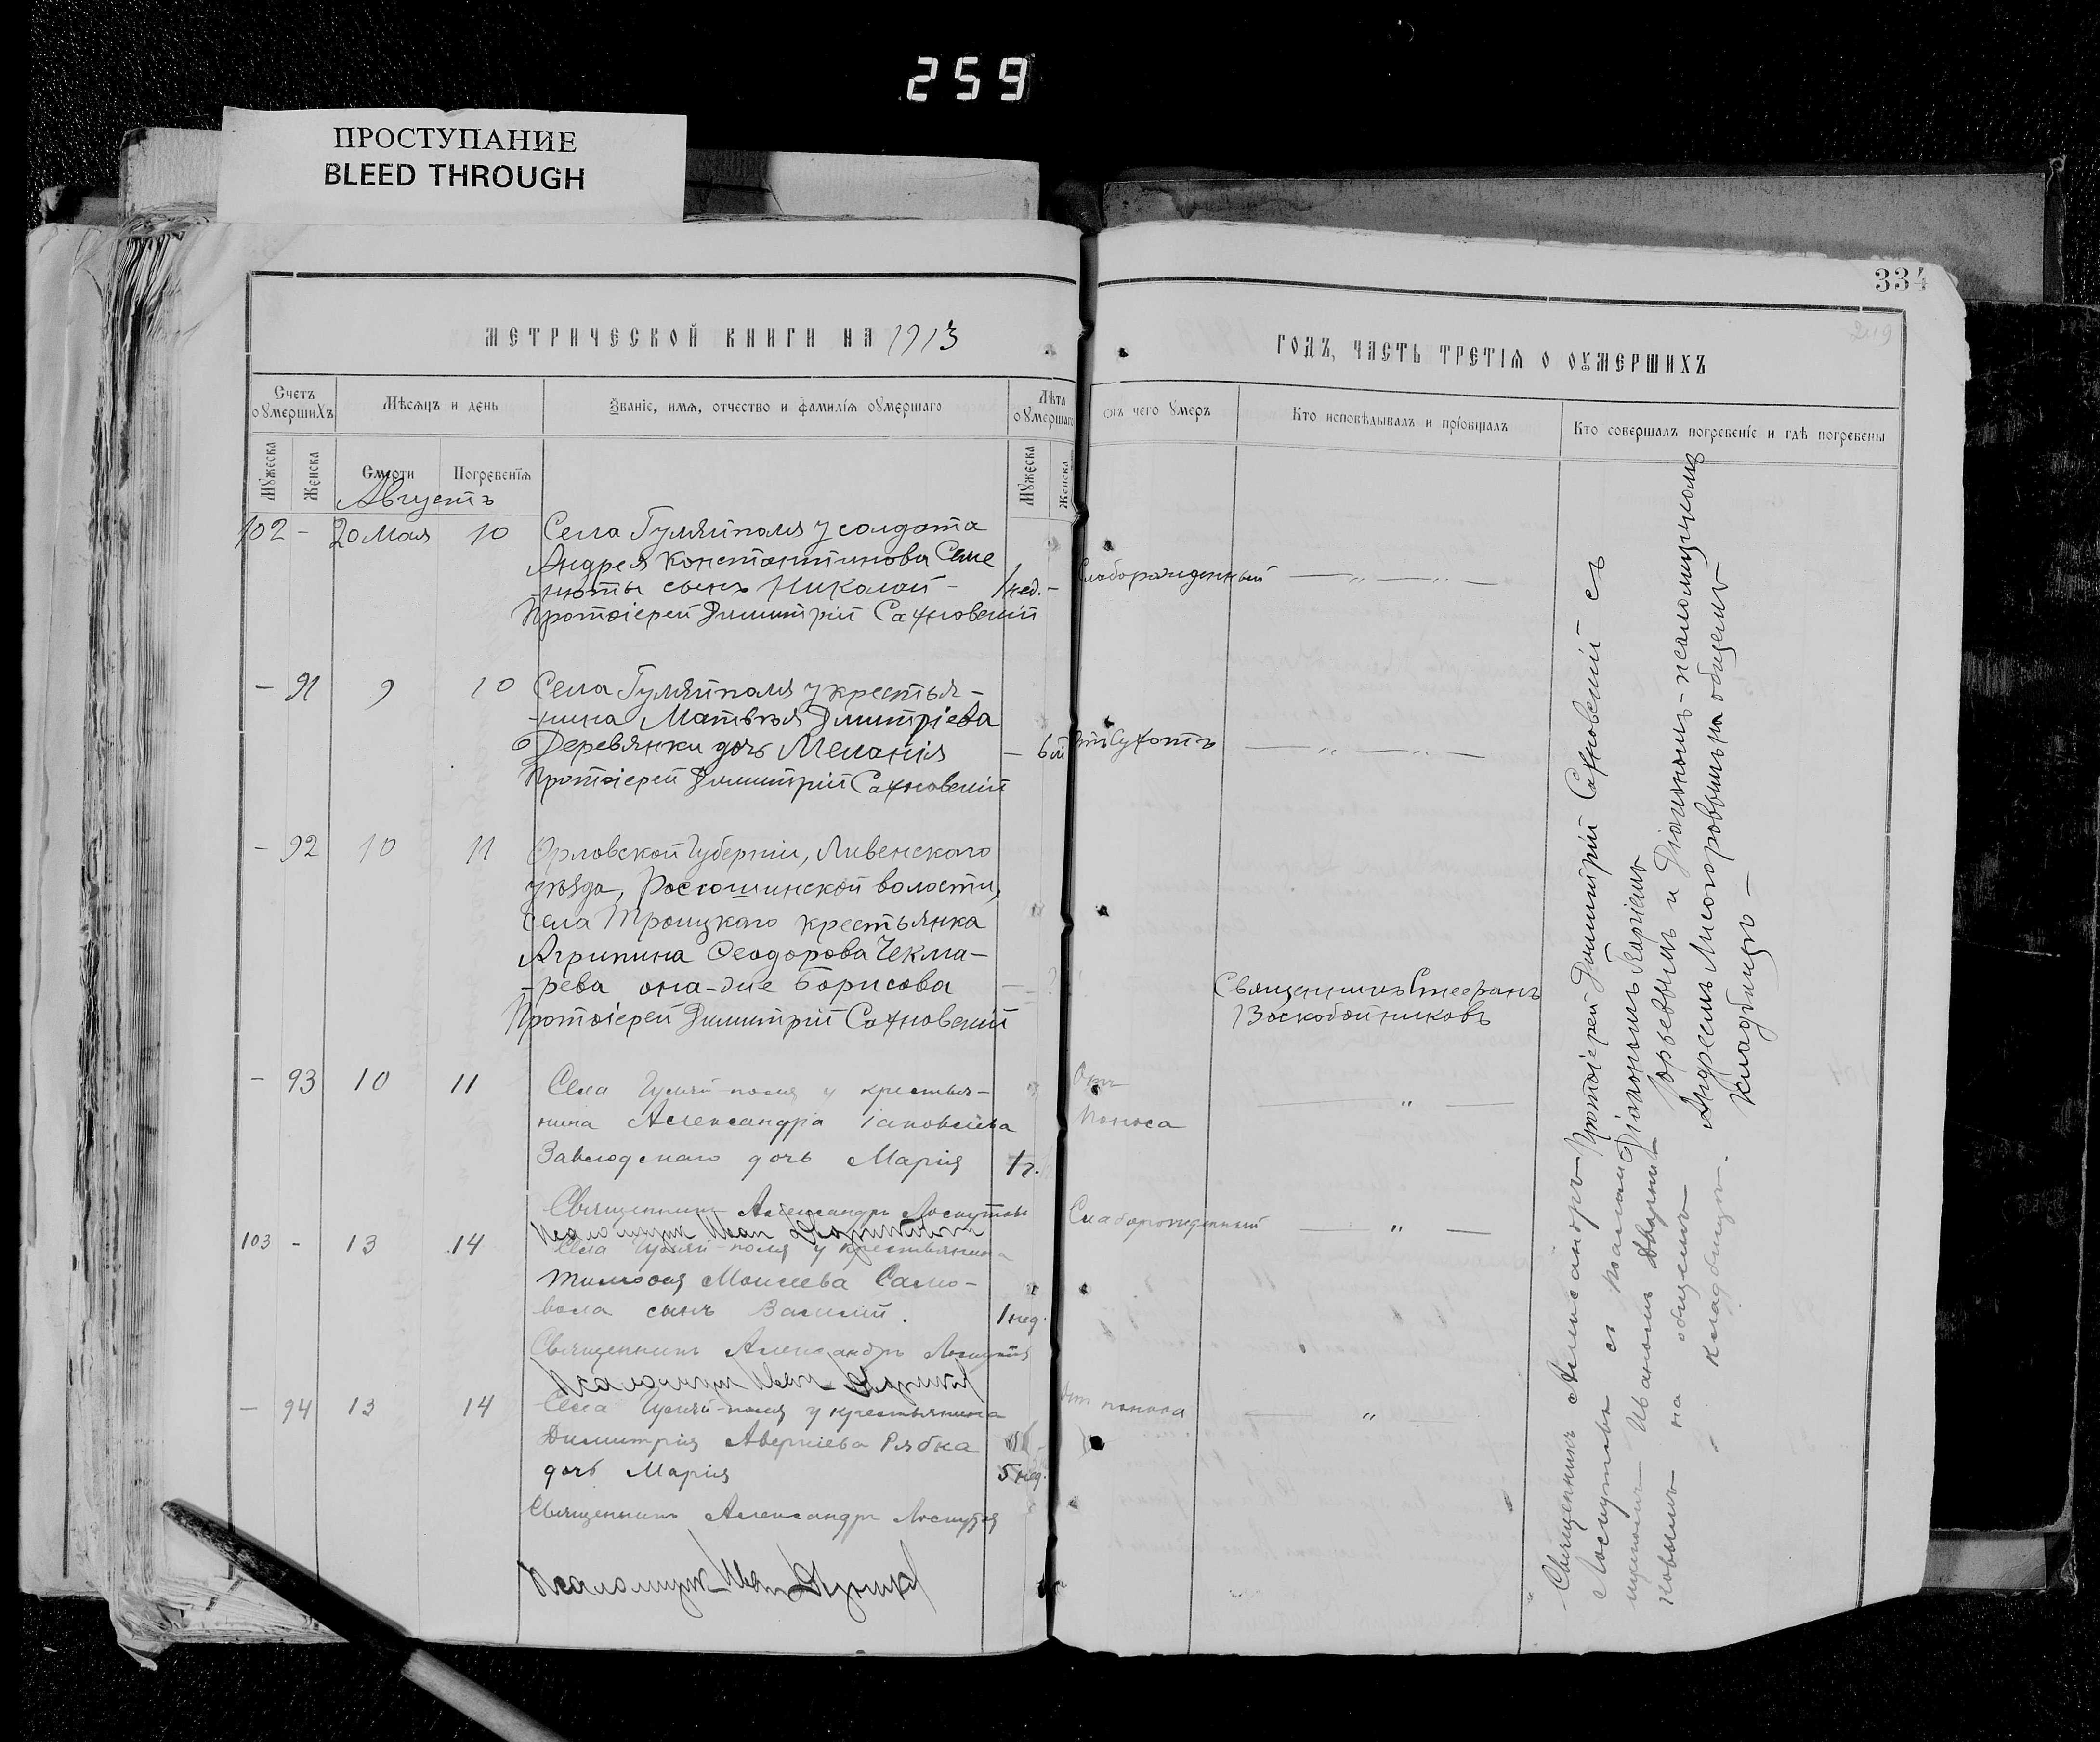 259
ПРОСТУПАНИЕ
BLEED THROUGH
334
249
МЕТРИЧЕСКОЙ КНИГИ НА 1913
ГОДЪ, ЧАСТЬ ТРЕТІЯ О ОУМЕРШИХЪ
Счетъ оумершихъ
Мѣсяцъ и день
Званіе, имя, отчество и фамилія оумершаго
Лѣта оумершаго
Отъ чего умеръ
Кто исповѣдывалъ и пріобщалъ
Кто совершалъ погребеніе и гдѣ погребены
Мужеска
Женска
Смерти
Погребенія
Мужеска
Женска
Августъ
102 - 20 Мая 10 Села Гуляйполя у солдата
Андрея Константинова Семе
нюты сынъ Николай - 1 нед. - Слаборожденный — „ — „ —
Протоіерей Димитрій Сахновскій
- 91 9 10 Села Гуляйполя у крестья-
-нина Матвѣя Димитріева
Деревянки дочь Меланія — 6 м Отъ сухотъ — „ — „ —
Протоіерей Димитрій Сахновскій
- 92 10 11 Орловской Губерніи, Ливенскаго
уѣзда, Россошинской волости,
села Троицкаго крестьянка
Агрипина Ѳеодорова Чекма-
-рева она-же Борисова
Священникъ Стефанъ
Воскобойниковъ
Протоіерей Димитрій Сахновскій
- 93 10 11 Села Гуляй-поля у крестья-
нина Александра Іаковлева
Отъ
поноса — „ —
Заводскаго дочь Марія 1 г.
Священникъ Александръ Лоскутовъ
Псаломщик Иван
103 - 13 14 Села Гуляй-поля у крестьянина
Слаборожденный — „ —
Тимоѳея Моисеева Само-
вола сынъ Василій. 1 нед.
Священникъ Александръ Лоскутов
Псаломщик Иван
- 94 13 14 Села Гуляй-поля у крестьянина
Отъ поноса — „ —
Димитрія Аверкіева Рябка
дочь Марія 5 нед.
Священникъ Александръ Лоскутов
Псаломщик Иван
Протоіерей Димитрій Сахновскій съ
Діакономъ
Юрьевымъ и Діакономъ-псаломщикомъ
Андреемъ Лисогоровымъ на общемъ
кладбищѣ —
Священникъ Александръ
Лоскутовъ съ псалом-
щикомъ Иваномъ
ковымъ на общемъ
кладбищѣ.